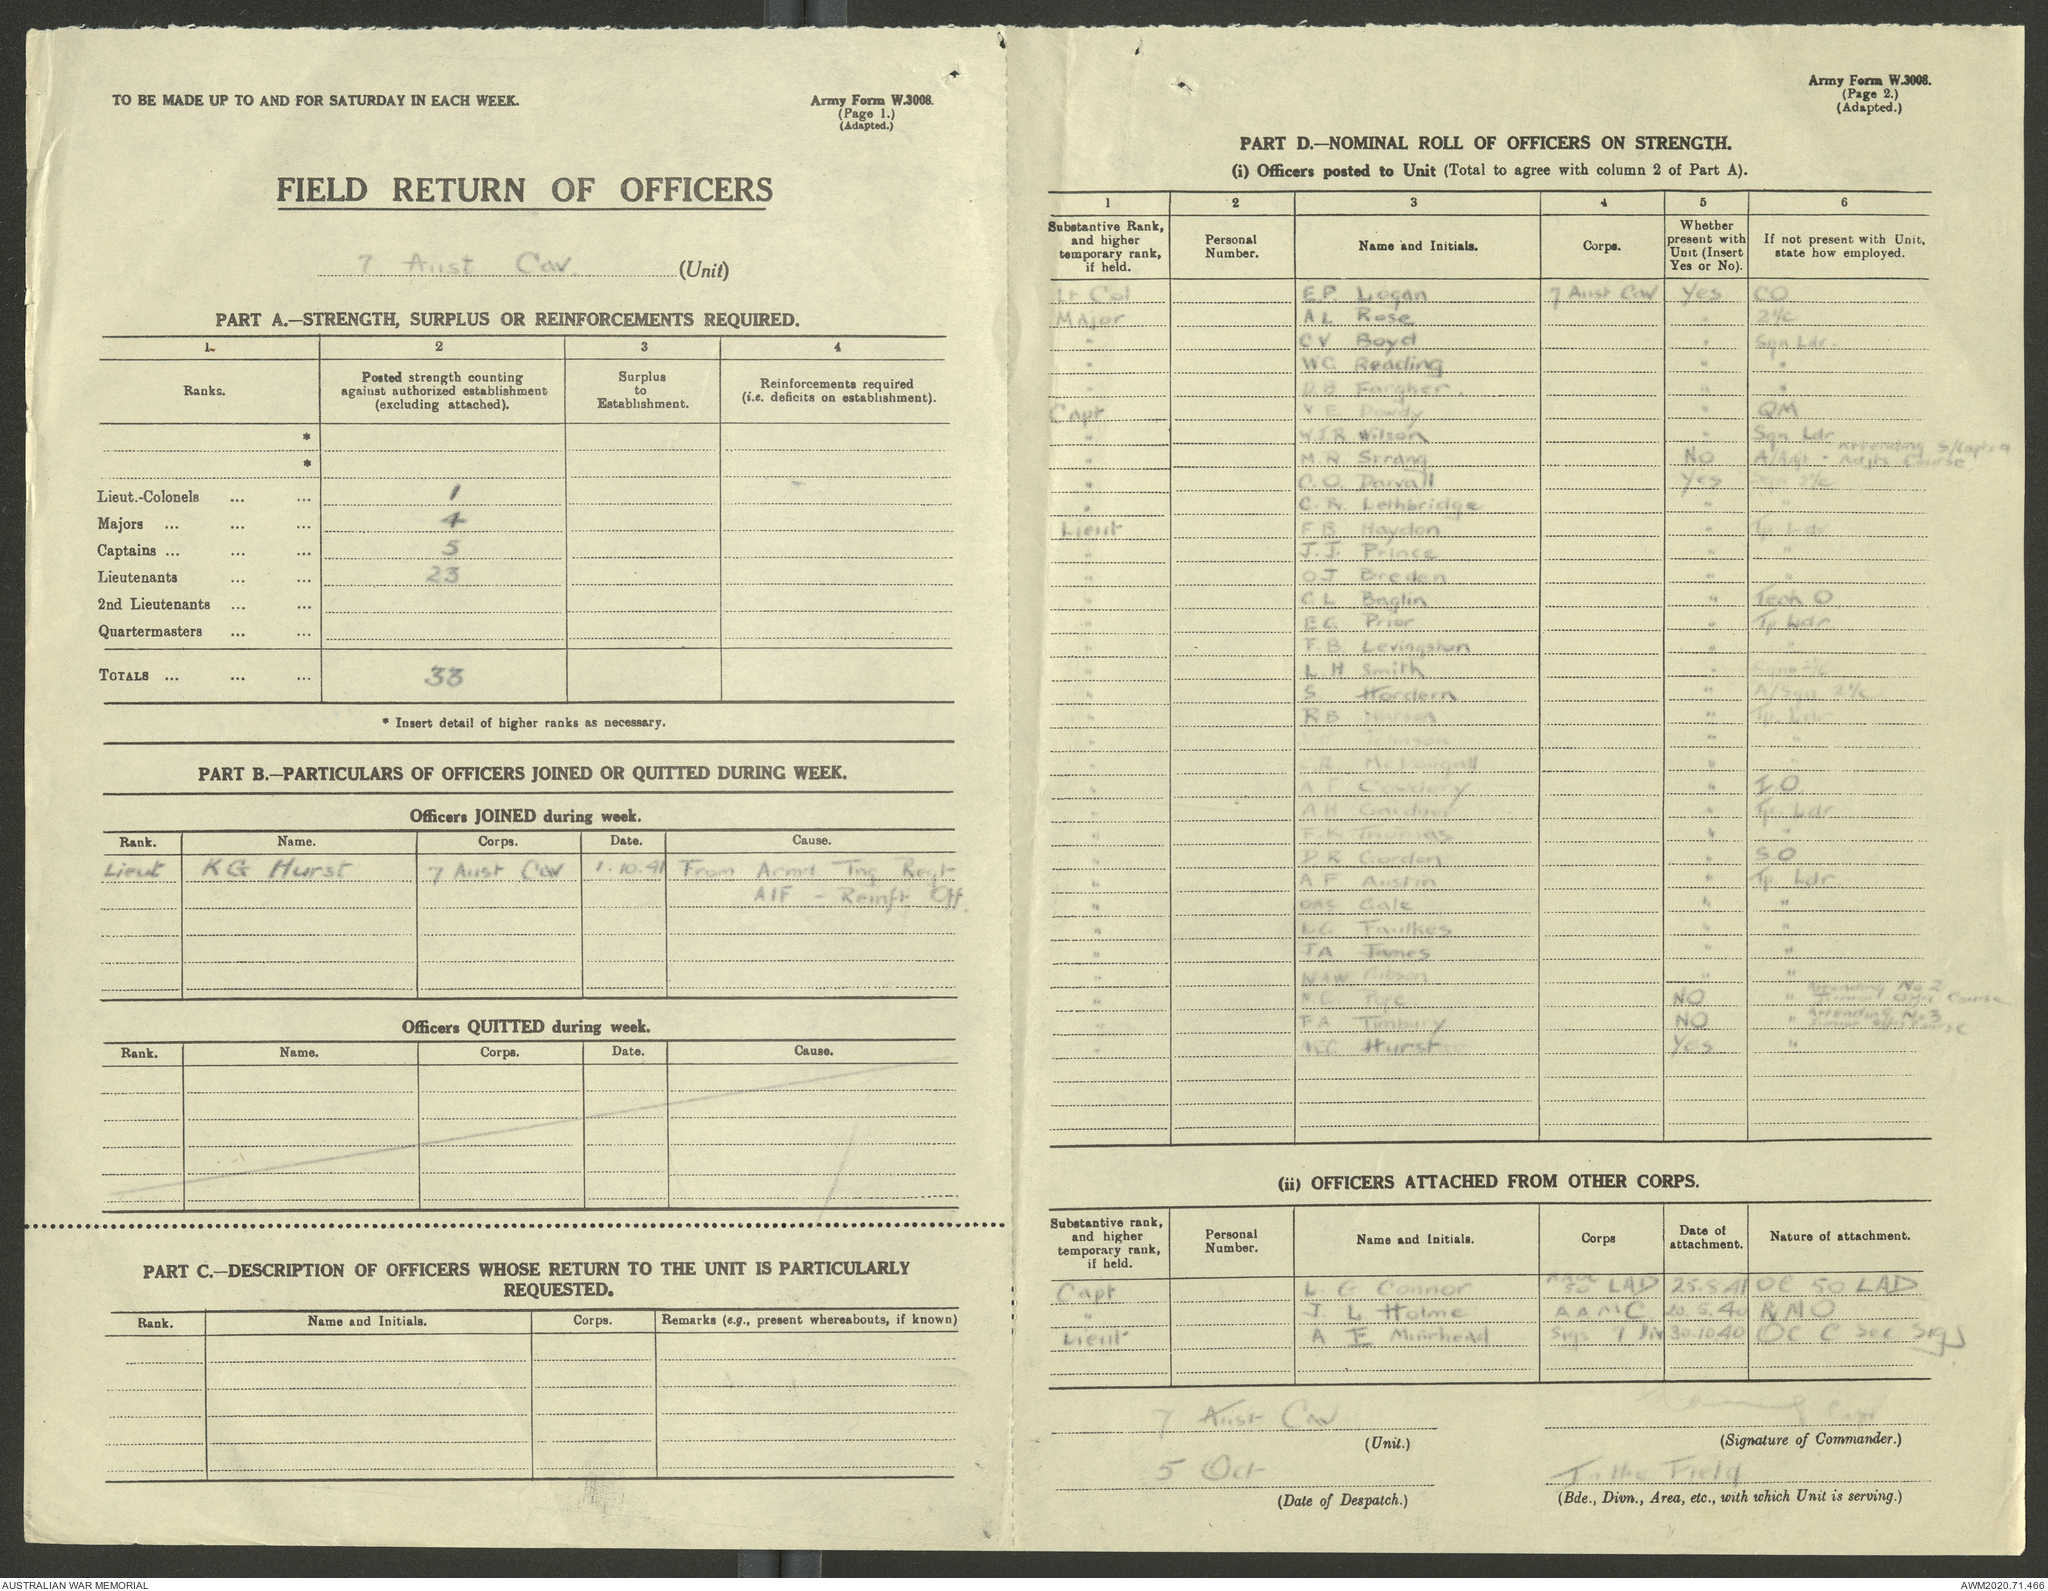 TO BE MADE UP TO AND FOR SATURDAY IN EACH WEEK.
Army Form W.3008.
(Page 1.)
(Adapted.)
FIELD RETURN OF OFFICERS
7 Aust Cav (Unit)
PART A.—STRENGTH, SURPLUS OR REINFORCEMENTS REQUIRED.
1. 2 3 4
Ranks. Posted strength counting against authorized establishment (excluding attached). Surplus to Establishment. Reinforcements required (i.e. deficits on establishment).
*
*
Lieut.-Colonels ... ... 1
Majors ... ... ... 4
Captains ... ... ... 5
Lieutenants ... ... 23
2nd Lieutenants ... ...
Quartermasters ... ...
TOTALS ... ... ... 33
* Insert detail of higher ranks as necessary.
PART B.—PARTICULARS OF OFFICERS JOINED OR QUITTED DURING WEEK.
Officers JOINED during week.
Rank. Name. Corps. Date. Cause.
Lieut KG Hurst 7 Aust Cav 1.10.41 From Armd Tng Regt
AIF - Reinft Off.
Officers QUITTED during week.
Rank. Name. Corps. Date. Cause.
PART C.—DESCRIPTION OF OFFICERS WHOSE RETURN TO THE UNIT IS PARTICULARLY
REQUESTED.
Rank. Name and Initials. Corps. Remarks (e.g., present whereabouts, if known)
Army Form W.3008.
(Page 2.)
(Adapted.)
PART D.—NOMINAL ROLL OF OFFICERS ON STRENGTH.
(i) Officers posted to Unit (Total to agree with column 2 of Part A).
1 2 3 4 5 6
Substantive Rank, and higher temporary rank, if held. Personal Number. Name and Initials. Corps. Whether present with Unit (Insert Yes or No). If not present with Unit, state how employed.
Lt Col E.P. Logan 7 Aust Cav Yes CO
Major A L Rose " 2i/c
" C V Boyd " Sqn Ldr.
" W.G. Reading " "
" D B Fargher. " "
Capt V E Dowdy " QM
" W.J.R Wilson " Sqn Ldr
" M.R Strang NO A/Adjt - Attending S/Capts & Adjts Course
" C.O. Darvall Yes Sqn 2i/c
" C.R. Lethbridge " "
Lieut F B Haydon " Tp Ldr
" J.J. Prince " "
" O J Breden " "
" C L Baglin " Tech O
" E G Prior " Tp Ldr
" F.B. Levingston " "
" L.H Smith "
" S. Hordern " A/Sqn 2i/c
" R B " Tp. Ldr
" Johnson " "
" McDougall " "
" A T Cowdery " I.O
" A H Gardner " Tp. Ldr
" F.K Thomas " "
" D R Gordon " S.O
" A F Austin " Tp Ldr.
" DAS Gale " "
" L.G Faulkes " "
" J A James " "
" NAW Gibson " "
" Pope NO " Attending No 2 Junior Offr Course
" F A Timbury NO " Attending No 3 Junior Offrs Course
" KG Hurst Yes "
(ii) OFFICERS ATTACHED FROM OTHER CORPS.
Substantive rank, and higher temporary rank, if held. Personal Number. Name and Initials. Corps Date of attachment. Nature of attachment.
Capt L. G Connor 50 LAD 25.5.41 OC 50 LAD
" J. L Holme A A M C 20.5.40 RMO
Lieut A E Muirhead Sigs 7 Div 30.10.40 OC C Sec Sigs
7 Aust Cav
(Unit.)
Capt
(Signature of Commander.)
5 Oct
(Date of Despatch.)
In the Field
(Bde., Divn., Area, etc., with which Unit is serving.)
AUSTRALIAN WAR MEMORIAL
AWM2020.71.466